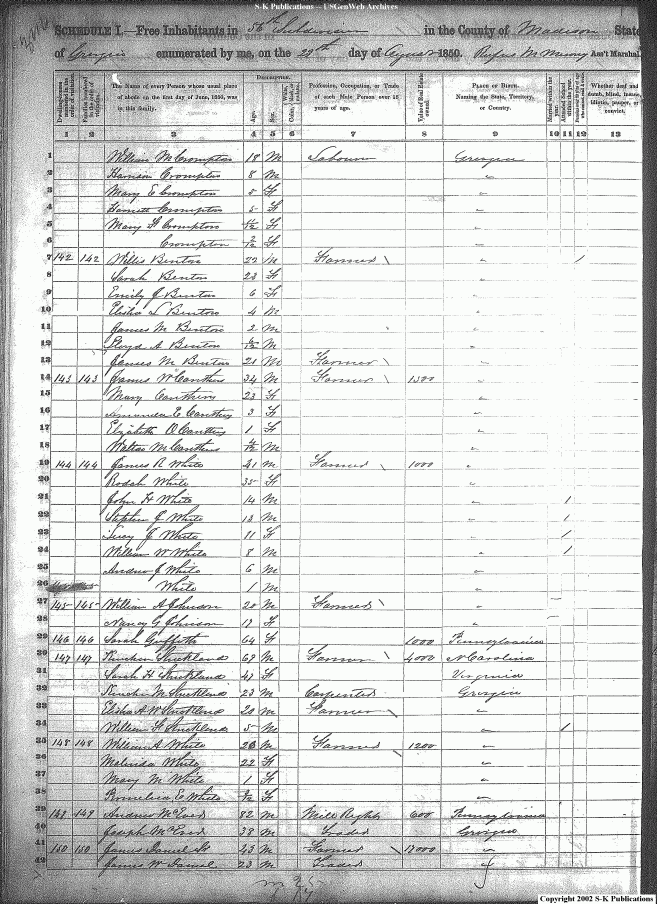 S-K Publications — USGenWeb Archives
SCHEDULE I.—Free Inhabitants in 56th Subdivision in the County of Madison State
of Georgia enumerated by me, on the 28th day of August 1850. Ass't Marshal.
Dwelling-houses numbered in the order of visitation. Families numbered in the order of visitation. The Name of every Person whose usual place of abode on the first day of June, 1850, was in this family. DESCRIPTION. Age. Sex. White, black, or mulatto. Profession, Occupation, or Trade of each Male Person over 15 years of age. Value of Real Estate owned. PLACE OF BIRTH. Naming the State, Territory, or Country. Married within the year. Attended School within the year. Whether deaf and dumb, blind, insane, idiotic, pauper, or convict.
1 2 3 4 5 6 7 8 9 10 11 12 13
1 William M Crompton 18 M Labourer Georgia
2 Harrison Crompton 8 M "
3 Mary E Crompton 5 F "
4 Harriett Crompton 5 F "
5 Mary F Crompton F "
6 Crompton F "
7 142 142 Willis Benton 22 M Farmer "
8 Sarah Benton 23 F "
9 Emily J Benton 6 F "
10 Elisha L Benton 4 M "
11 James M Benton 2 M "
12 Floyd A Benton M "
13 James M Benton 21 M Farmer "
14 143 143 James W Canthen 34 M Farmer 1300 "
15 Mary Canthen 23 F "
16 Amanda E Canthen 3 F "
17 Elizabeth O Canthen 1 F "
18 Walton M Canthen M "
19 144 144 James R White 41 M Farmer 1000 "
20 Rodah White 35 F "
21 John H White 14 M "
22 Stephen J White 13 M "
23 Lucy J White 11 F "
24 William W White 8 M "
25 Andrew J White 6 M "
26 White 1 M "
27 145 145 William A Johnson 20 M Farmer "
28 Nancy G Johnson 17 F "
29 146 146 Sarah Griffeth 64 F 1000 Pennsylvania
30 147 147 Kinchen Strickland 68 M Farmer 4000 N Carolina
31 Sarah H Strickland F Virginia
32 Kinchen M Strickland 23 M Carpenter Georgia
33 Elisha A W Strickland 20 M Farmer "
34 William F Strickland 5 M "
35 148 148 William A White 26 M Farmer 1200 "
36 Malinda White 22 F "
37 Mary M White 1 F "
38 Permelia E White F "
39 149 149 Andrew McEver 82 M Mill Right 600 Pennsylvania
40 Joseph McEver 38 M Trader Georgia
41 150 150 James Daniel Sr M Farmer "
42 James W Daniel 23 M Trader "
Copyright 2002 S-K Publications